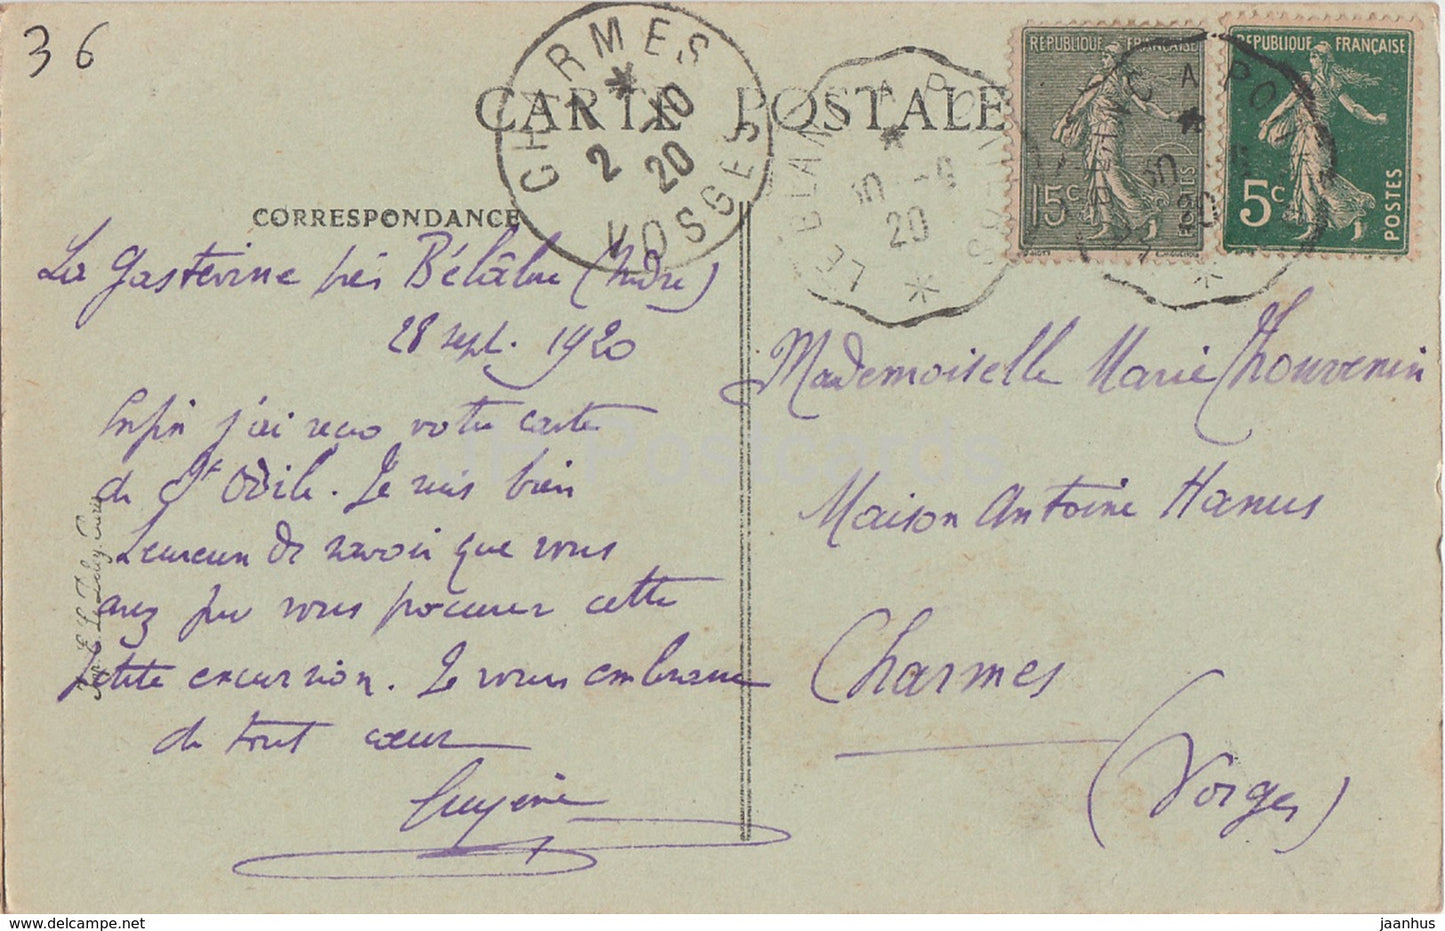 36
CARTE POSTALE
CHARMES
2 -10
20
VOSGES
LE BLANC A POITIERS
30 -9
20
LE BLANC A PO
30
20
REPUBLIQUE FRANÇAISE
15c
POSTES
REPUBLIQUE FRANÇAISE
5c
POSTES
CORRESPONDANCE
La Gastevine près Bélâbre (Indre)
28 sept. 1920
Enfin j'ai reçu votre carte
de St Odile. Je suis bien
heureux de savoir que vous
avez pu vous procurer cette
petite excursion. Je vous embrasse
de tout cœur
Eugène
Mademoiselle Marie Thouvenin
Maison Antoine Hanus
Charmes
(Vosges)
Imp. E. Le Deley, Paris
JH Postcards
https://www.delcampe.net
jaanhus